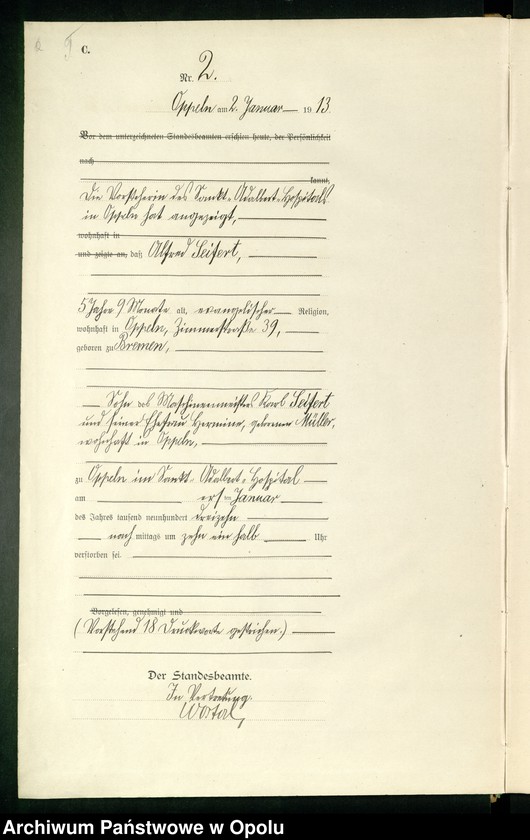 C.
Nr. 2.
Oppeln am 2. Januar 19 13
Vor dem unterzeichneten Standesbeamten erschien heute, der Persönlichkeit
nach
kannt,
Die Vorsteherin des Sankt-Adalbert-Hospitals
in Oppeln hat angezeigt,
wohnhaft in
und zeigte an, daß Alfred Seifert,
5 Jahre 9 Monate alt, evangelischer Religion,
wohnhaft in Oppeln, Zimmerstraße 39,
geboren zu Bremen,
Sohn des Maschinenmeisters Karl Seifert
und seiner Ehefrau Hermine, geborenen Müller,
wohnhaft in Oppeln,
zu Oppeln im Sankt-Adalbert-Hospital
am ersten Januar
des Jahres tausend neunhundert dreizehn
nach mittags um zehn ein halb Uhr
verstorben sei.
Vorgelesen, genehmigt und
(Vorstehend 18 Druckworte gestrichen.)
Der Standesbeamte.
In Vertretung.
Wostal
Archiwum Państwowe w Opolu